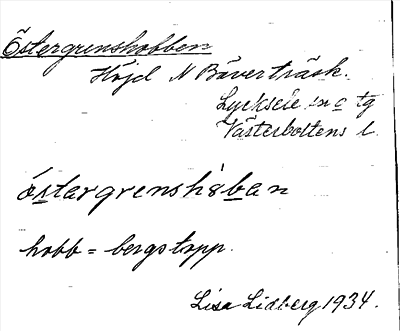 Östergrenshobben
Höjd N Bäverträsk.
Lycksele sn o tg
Västerbottens l.
östargrenshåban
hobb = bergstopp.
Lisa Lidberg 1934.